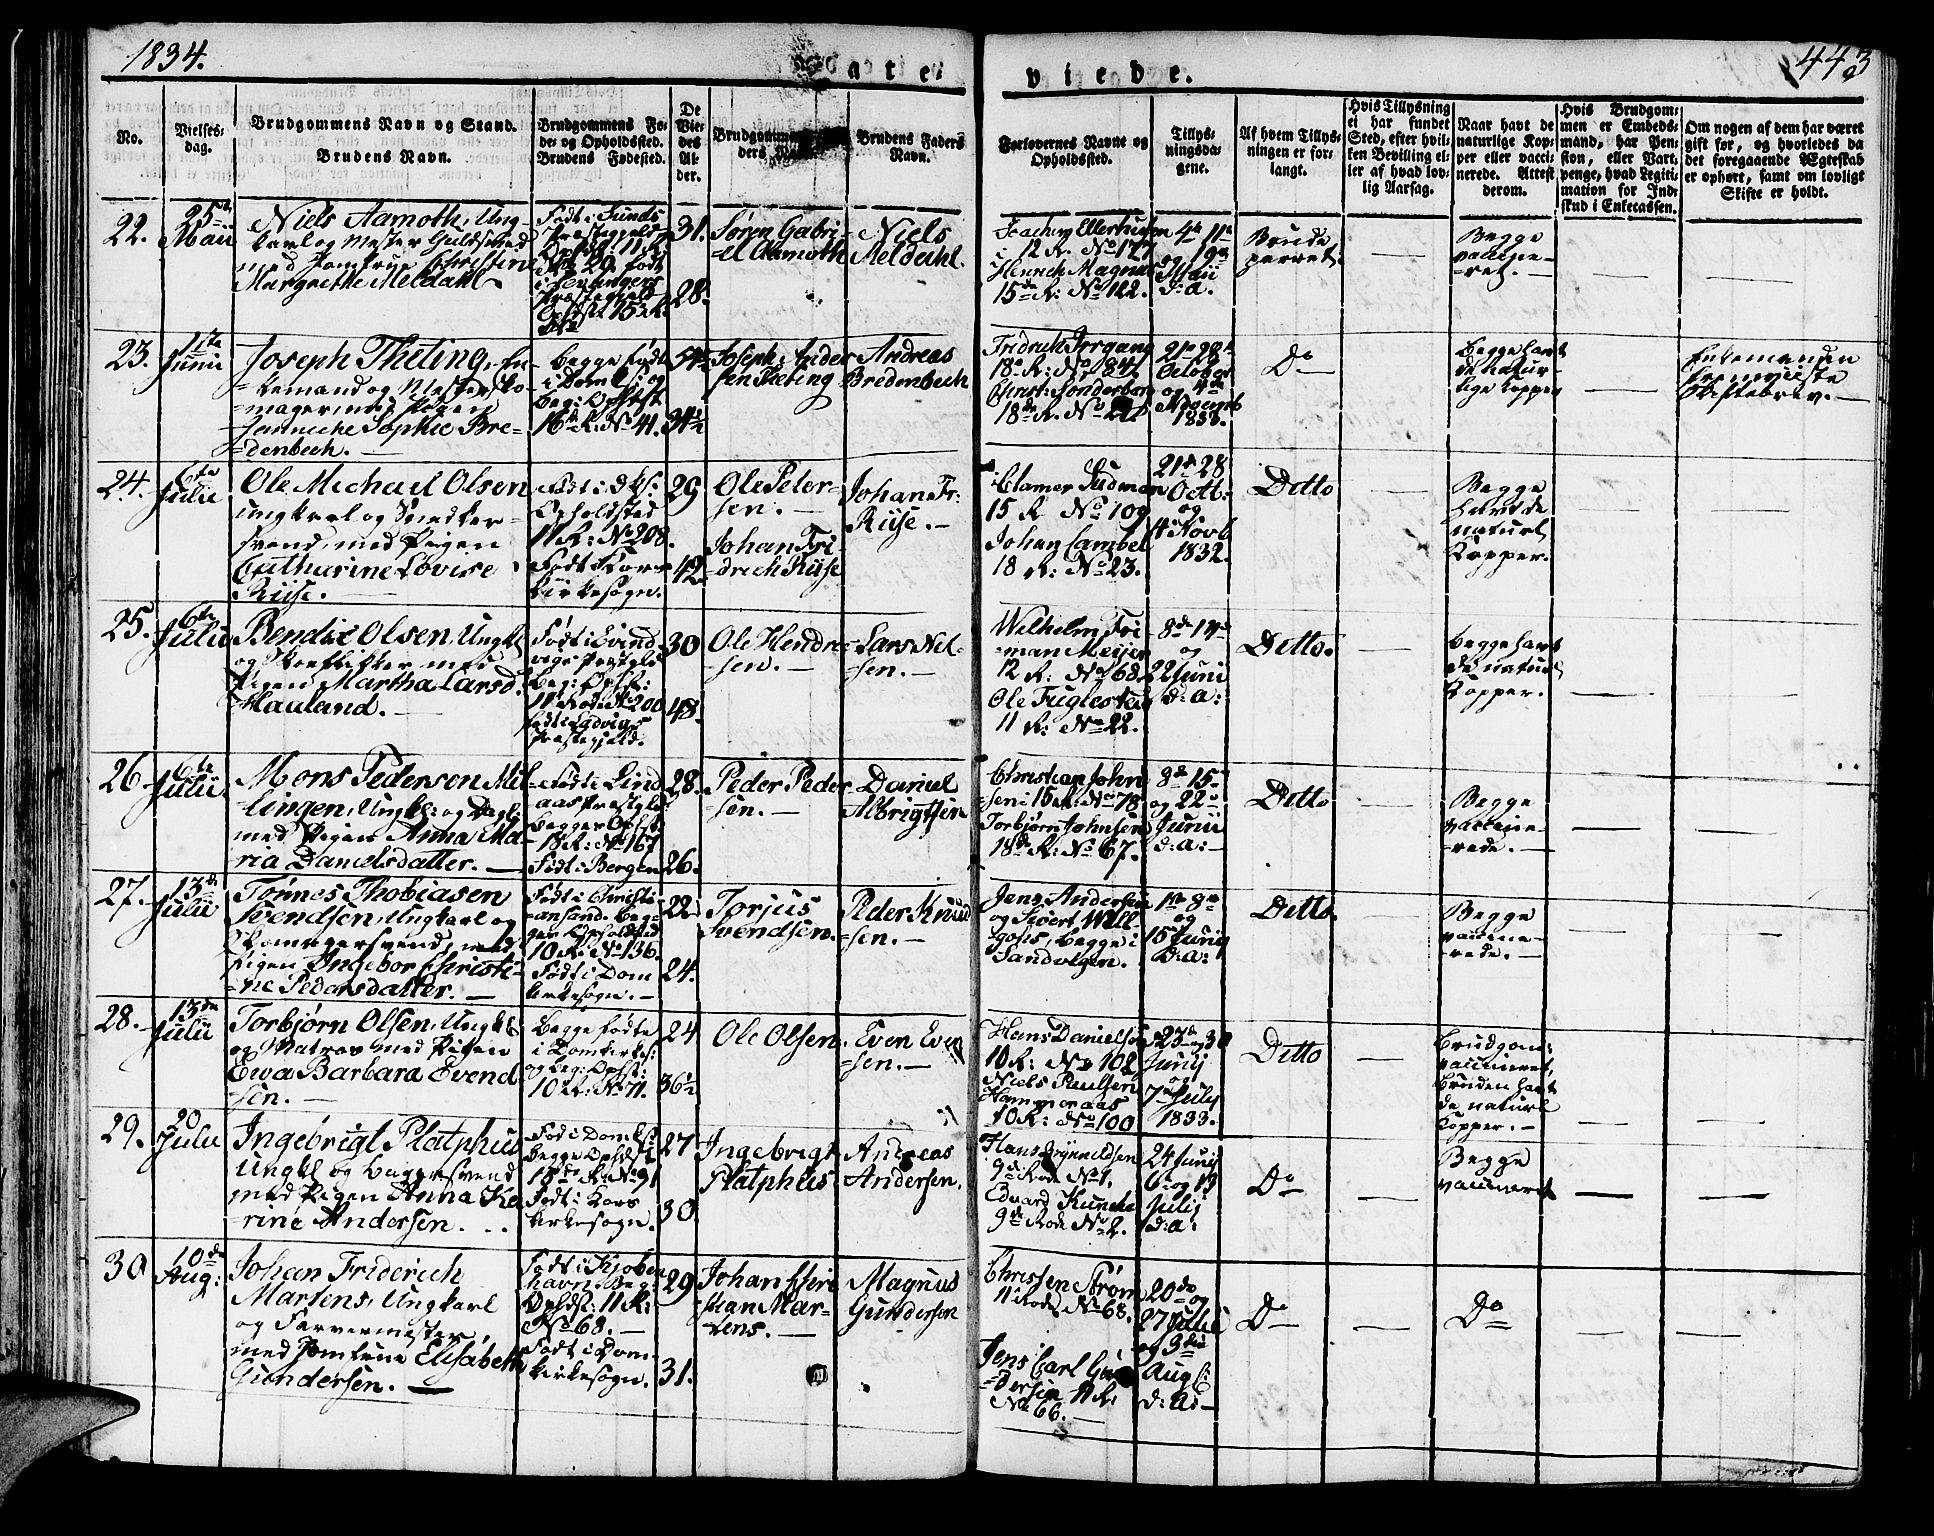 1834.
443
viede.
No.
Vielses-
dag.
Brudgommens Navn og Stand.
Brudens Navn.
Brudgommens Fø-
de- og Opholdssted.
Brudens Fødested.
De
Vie-
des
Al-
der.
Brudens Faders
Navn.
Forlovernes Navne og
Opholdssted.
Tillys-
ningsda-
gene.
Af hvem Tillys-
ningen er for-
langt.
Hvis Tillysning
ei har fundet
Sted, efter hvil-
ken Bevilling el-
ler af hvad lov-
lig Aarsag.
Naar havt de
naturlige Kop-
per eller vacci-
nerede. Attest
derom.
Hvis Brudgom-
men er Embeds-
mand, har Pen-
sion, eller Vart-
penge, hvad Legiti-
mation for Ind-
skud i Enkecassen.
Om nogen af dem har været
gift før, og hvorledes da
det foregaaende Ægteskab
er ophørt, samt om lovligt
Skifte er holdt.
22.
25de
Maii
Niels Aamoth, Ung-
karl og Mester Guldsmed
med Jomfrue Christine
Margrethe Meldahl
31.
28.
Søren Gabri-
el Aamoth
Niels
Meldahl.
Joachim Ellerhusen
i 12 R. No 177
Henrich Magnus
15de R: No 122.
4de 11te
og 19de
Maii
d: a.
Brude
parret.
Begge
vaccine-
ret.
23.
1ste
Junii
Joseph Theting, En-
kemand og Mester Sko-
mager med Pigen
Janniche Sophie Bre-
denbech.
Begge født
i Domk: og
beg: Ophst
16de R: No 41.
54½
34½
Joseph Ander
sen Theting
Andreas
Bredenbech
Fridrich Irrgang
18de R: No 84
18de R. No
21de 28de
October
og 4de
Novemb
1833.
Do
Begge havt
de natur-
lige Kopper
Enkemanden
fremviiste
Skiftebrev.
24.
6te
Julii
Ole Michael Olsen
ungkarl og Snedker-
svend, med Pigen
Catharine Lovise
Riise.
Født i Dks:
Opholdsted
11 R: No 208.
Født Kors-
kirkesogn.
29
42.
Ole Peter-
sen.
Johan Fri-
drich Riise
Johan Fr:
Riise.
Clamer Sudman
15 R No 109
Johan Cambel
18 R: No 23.
21de 28
Octb.
og
4 Novb
1832.
Ditto
Begge
havt de
naturl
Kopper.
25.
6te
Julii
Bendix Olsen, Ungkl
og Skoeflikker med
Pigen Martha Larsd.
Hauland.
Født i Evind
vigs Præstgld
Beg: Ophst:
11 Rode No 200
født i Ladvigs
Præstegjeld.
30
48.
Ole Hendrc-
sen.
Lars Nel-
sen.
Wilhelm Fri
man Meijer
12 R. No 68.
Ole Fuglestad
11 R: No 22.
8de 14de
og
22 Juni
d: a:
Ditto.
Begge havt
de naturl
Kopper.
26.
6te
Julii
Mons Pedersen Mil-
lingen, Ungkl: og Dagk.
med Pigen Anna Ma-
ria Danielsdatter.
Født i Lind
aas Præstgld
begges Ophst
18 R: No 167
Født i Bergen
28.
26.
Peder Peder
sen.
Daniel
Albrigtsen
Christian John
sen i 15 R: No 78
Torbjørn Johnsen
18de R: No 67.
8de 15de
og 22de
Junii
d: a:
Ditto
Begge
vaccine-
rede.
27.
13de
Julii
Tönnes Thobiasen
Svendsen, Ungkarl og
svend, med
Pigen Ingebor Christi-
ne Pedersdatter.
Født i Christi-
ansand. Beg-
ges Opholdsted
10 R: No 136.
Født i Dom
kirkesogn.
22
24.
Torjus
Svendsen.
Peder Knud
sen.
Jens Andersen
og Sivert Will-
gohs, begge i
Sandvigen.
1ste 8de
og
15 Junij
D: a:
Ditto
Begge
vaccine-
rede.
28.
13de
Julii
Torbjørn Olsen, Ungkl
og Matros med Pigen
Ewa Barbara Evend
sen.
Begge fødte
i Domkirkes:
og beg: Ophst:
10 R: No 71.
24
36½
Ole Olsen.
Even Even
sen.
Hans Danielsen
10 R: No 102
Niels Paulsen
Hammeraas
10 R: No 100
23de og 30
Junij
og
7de July
1833.
Ditto
Brudgom:
vaccineret,
Bruden havt
de naturl
Kopper.
29.
20
Julii
Ingebrigt Platphus
Ungkl og Baggersvend
med Pigen Anna Ka
rine Andersen.
Fød i Domks:
begge Ophst i
18de R: No 91
Født i Kors
kirkesogn.
27
30
Ingebrigt
Platphus
Andreas
Andersen.
Hans Brynnildsen
9de Rode No 1.
Edvard Kuncke
9de Rode No 2.
24 Junij
6 og 13
Julij
d: a:
Do
Begge
vaccineret
30
10de
Aug:
Johan Friderich
Martens, Ungkarl
og Farvermester,
med Jomfrue Elisabeth
Gundersen.
Født i Kjöben
havn. Beg:
Ophdst: 11 R:
No 68.
Født i Dom-
kirkesogn.
29
31.
Johan Chri
stian Mar-
tens.
Magnus
Gundersen
Christen Strøm
11 Rode No 68.
Jens Carl Gun
dersen 11 R:
No 66.
20de og
27 Julii
og 3die
Aug
d: a:
Do
Do